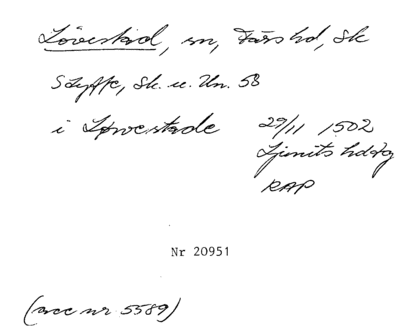 Lövestad, sn, Färs hd, Sk
Styffe, Sk. u. Un. 58
i Løvestade 29/11 1502
Ljunits hdsg
RAP
Nr 20951
(acc nr 5589)